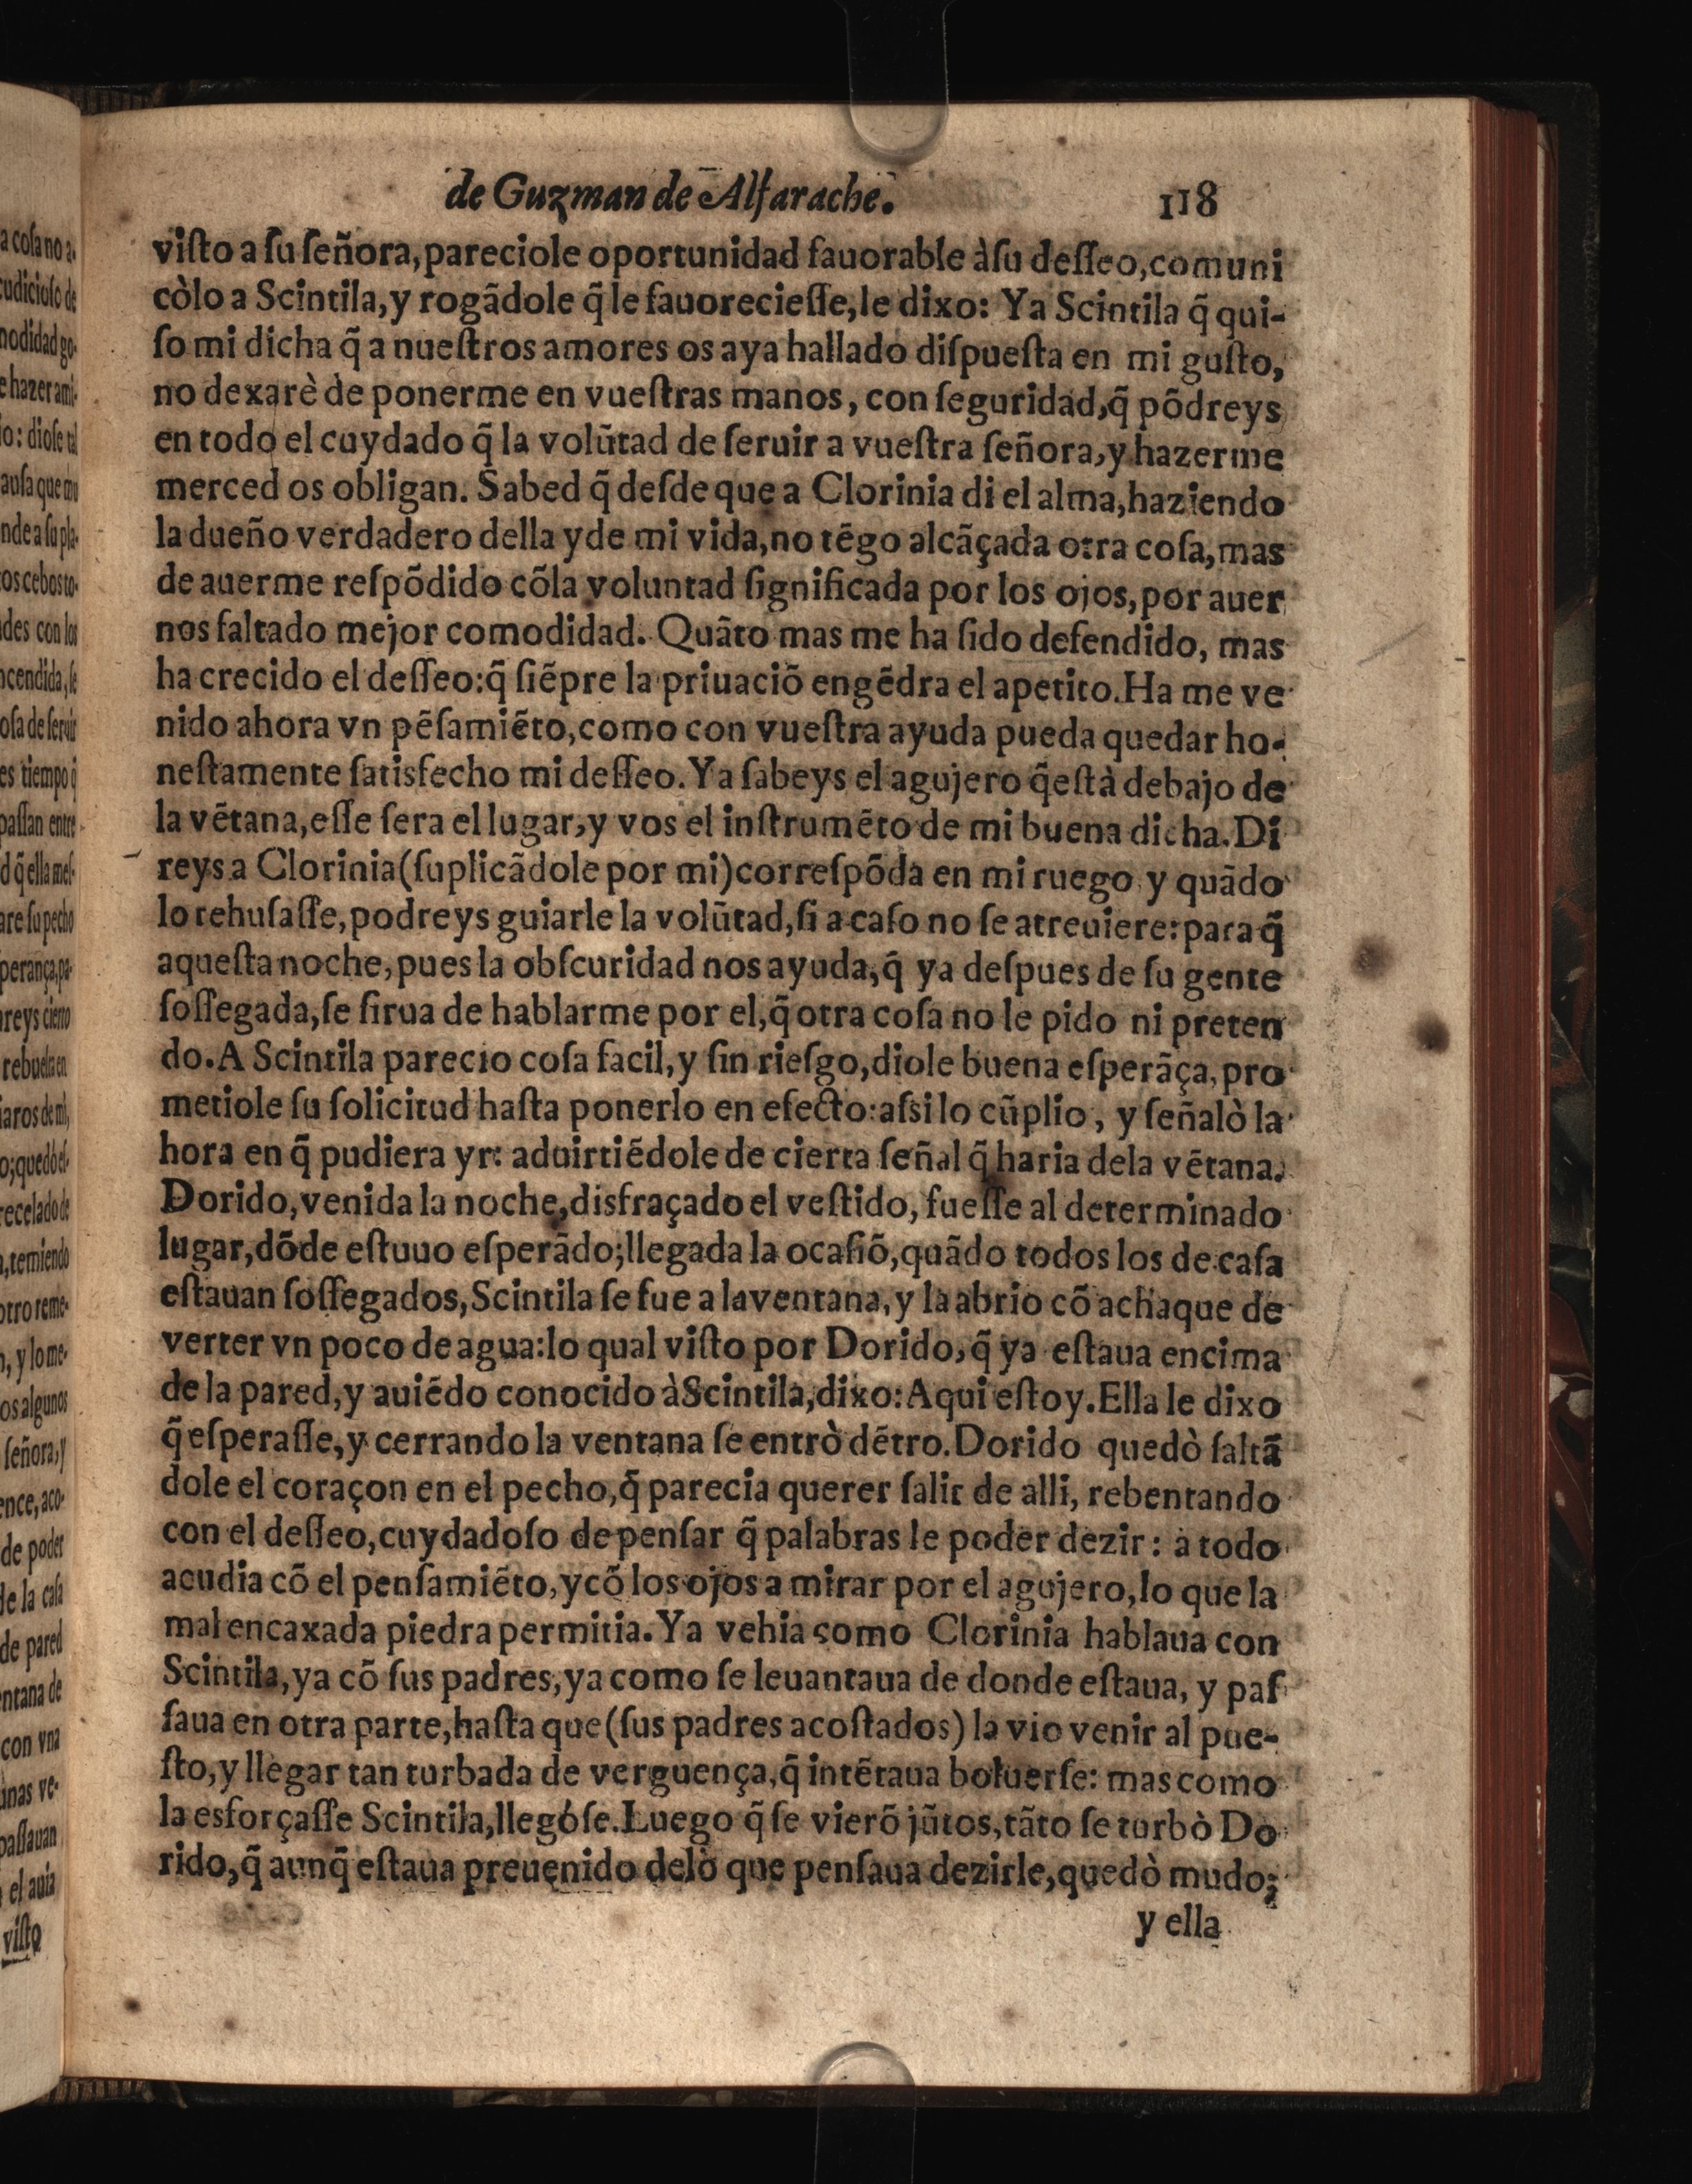 de Guzman de Alfarache.
118
viſto a ſu ſeñora, pareciole oportunidad fauorable à ſu deſſeo, comuni
còlo a Scintila, y rogãdole q̃ le fauorecieſſe, le dixo: Ya Scintila q̃ qui-
ſo mi dicha q̃ a nueſtros amores os aya hallado diſpueſta en mi guſto,
no dexarè de ponerme en vueſtras manos, con ſeguridad, q̃ põdreys
en todo el cuydado q̃ la volũtad de ſeruir a vueſtra ſeñora, y hazerme
merced os obligan. Sabed q̃ deſde que a Clorinia di el alma, haziendo
la dueño verdadero della y de mi vida, no tẽgo alcãçada otra coſa, mas
de auerme reſpõdido cõ la voluntad ſignificada por los ojos, por auer
nos faltado mejor comodidad. Quãto mas me ha ſido defendido, mas
ha crecido el deſſeo: q̃ ſiẽpre la priuaciõ engẽdra el apetito. Ha me ve
nido ahora vn pẽſamiẽto, como con vueſtra ayuda pueda quedar ho-
neſtamente ſatisfecho mi deſſeo. Ya ſabeys el agujero q̃ eſtà debajo de
la vẽtana, eſſe ſera el lugar, y vos el inſtrumẽto de mi buena dicha. Di
reys a Clorinia (ſuplicãdole por mi) correſpõda en mi ruego y quãdo
lo rehuſaſſe, podreys guiarle la volũtad, ſi a caſo no ſe atreuiere: para q̃
aqueſta noche, pues la obſcuridad nos ayuda, q̃ ya deſpues de ſu gente
ſoſſegada, ſe ſirua de hablarme por el, q̃ otra coſa no le pido ni preten
do. A Scintila parecio coſa facil, y ſin rieſgo, diole buena eſperãça, pro
metiole ſu ſolicitud haſta ponerlo en efecto: aſsi lo cũplio, y ſeñalò la
hora en q̃ pudiera yr: aduirtiẽdole de cierta ſeñal q̃ haria dela vẽtana.
Dorido, venida la noche, disfraçado el veſtido, fueſſe al determinado
lugar, dõde eſtuuo eſperãdo; llegada la ocaſiõ, quãdo todos los de caſa
eſtauan ſoſſegados, Scintila ſe fue a la ventana, y la abrio cõ achaque de
verter vn poco de agua: lo qual viſto por Dorido, q̃ ya eſtaua encima
de la pared, y auiẽdo conocido à Scintila, dixo: Aqui eſtoy. Ella le dixo
q̃ eſperaſſe, y cerrando la ventana ſe entrò dẽtro. Dorido quedò ſaltã
dole el coraçon en el pecho, q̃ parecia querer ſalir de alli, rebentando
con el deſſeo, cuydadoſo de penſar q̃ palabras le poder dezir: a todo
acudia cõ el penſamiẽto, y cõ los ojos a mirar por el agujero, lo que la
mal encaxada piedra permitia. Ya vehia como Clorinia hablaua con
Scintila, ya cõ ſus padres, ya como ſe leuantaua de donde eſtaua, y paſ
ſaua en otra parte, haſta que (ſus padres acoſtados) la vio venir al pue-
ſto, y llegar tan turbada de verguença, q̃ intẽtaua boluerſe: mas como
la esforçaſſe Scintila, llegóſe. Luego q̃ ſe vierõ jũtos, tãto ſe turbò Do
rido, q̃ aunq̃ eſtaua preuenido delo que penſaua dezirle, quedò mudo;
y ella